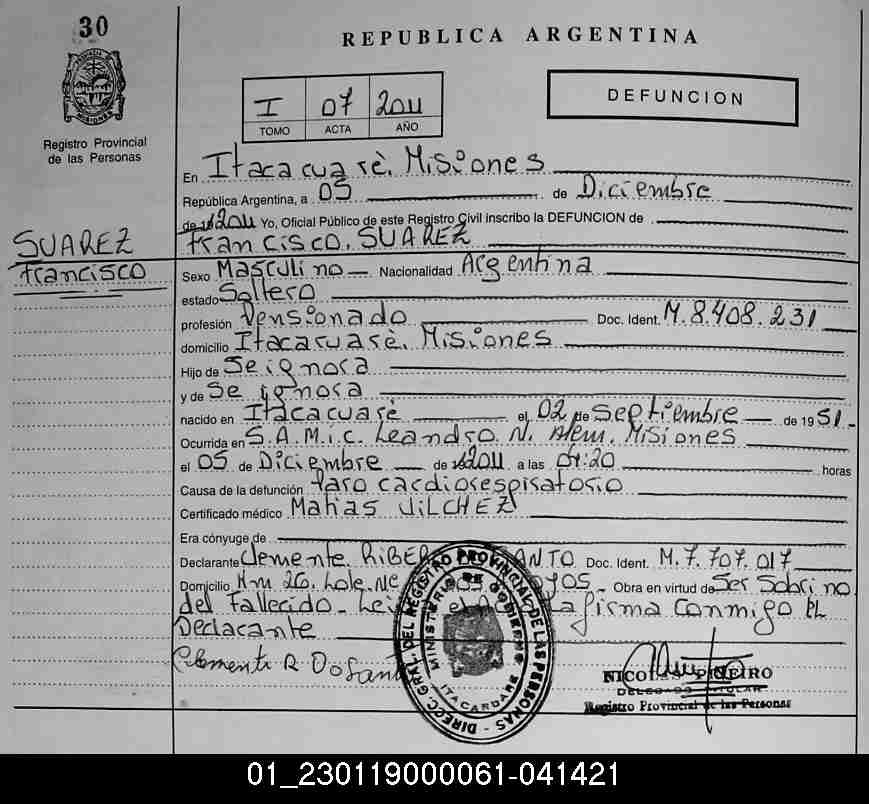 30
REPUBLICA ARGENTINA
PROVINCIA
MISIONES
Registro Provincial
de las Personas
I 07 2011
TOMO ACTA AÑO
DEFUNCION
En Itacacuaré. Misiones
República Argentina, a 05 de Diciembre
de 2011 Yo, Oficial Público de este Registro Civil inscribo la DEFUNCION de
SUAREZ
Francisco
Francisco. SUAREZ
Sexo Masculino Nacionalidad Argentina
estado Soltero
profesión Pensionado Doc. Ident. M.8.408.231
domicilio Itacaruaré. Misiones
Hijo de Se ignora
y de Se ignora
nacido en Itacacuaré el 02 de Septiembre de 1951.
Ocurrida en S.A.M.i.c. Leandro. N. Alem. Misiones
el 05 de Diciembre de 2011 a las 01:20 horas
Causa de la defunción Paro cardiorespiratorio
Certificado médico Matias VILCHEZ
Era cónyuge de
Declarante Clemente. RIBER ANTO Doc. Ident. M.7.707.017
Domicilio Km 26. Lote. Obra en virtud de Ser Sobrino
del Fallecido - el firma Conmigo EL
Declarante
Clemente R Dosant
DIRECC. GRAL. DEL REGISTRO PROVINCIAL DE LAS PERSONAS
MINISTERIO DE GOBIERNO
ITACARUARE
NICOLAS PIÑEIRO
DELEGADO TITULAR
Registro Provincial de las Personas
01_230119000061-041421